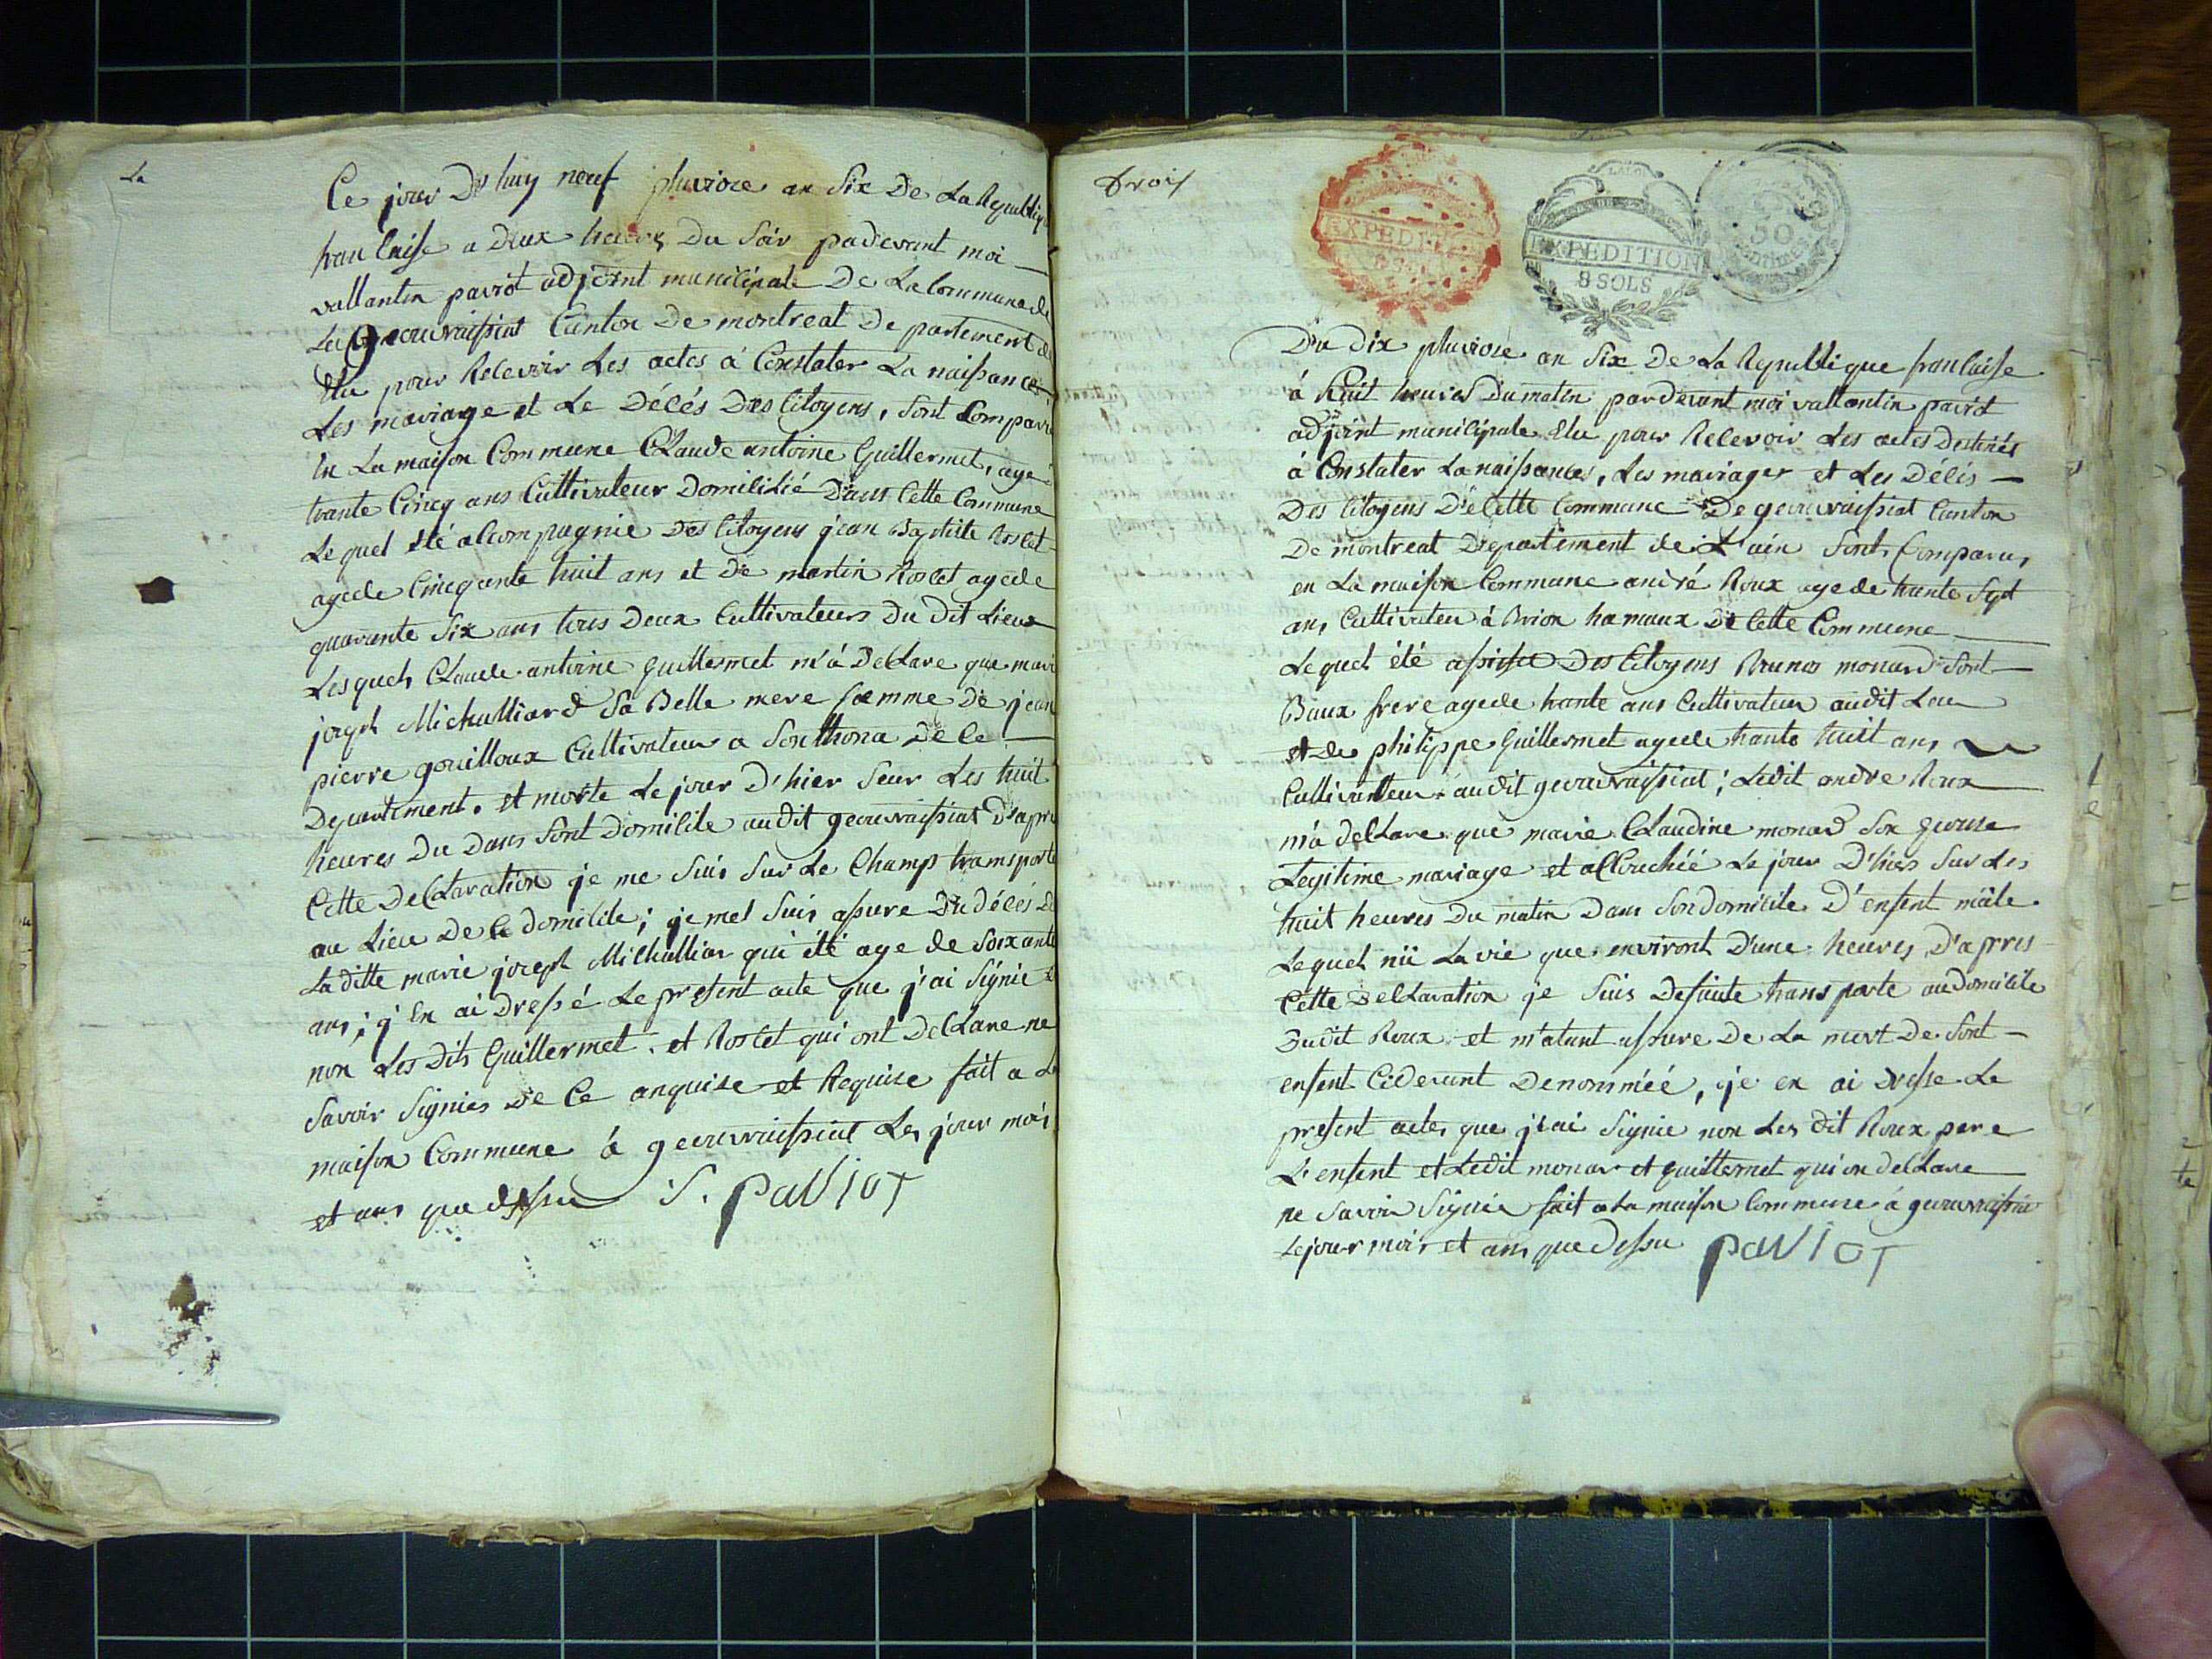 La
Ce jour D'huy neuf pluviose an Six De La Republiq
francaise a Deux heures Du Soir padevant moi
vallantin paviot adjoint municipale De La Commune de
geouvraissiat Canton De montreal De partement de
Elu pour Recevoir Les actes á Constater La naissance
Les mariage et Le Décés Des Citoyens, Sont Comparu
En La maison Commune CLaude antoine Guillermet, age
trante Cincq ans Cultivateur Domicilié Dans Cette Commune
Le quel été acompagnie Des Citoyens jean Baptiste Roslet
agede Cincqante huit ans et De martin Roslet agede
quarante Six ans tous Deux Cultivateurs Du Dit Lieux
Lesquels CLaude antoine guillermet m'á DecLare que mari
joseph Michalliard Sa Belle mere famme De jean
pierre gouilloux Cultivateur a Sonthona De Ce
Departement. et morte Le jour D'hier Seur Les huit
heures Du Dans Sont Domicile audit geouvraissiat D'apre
Cette DecLaration je me Suis Sur Le Champs transporté
au Lieu De Ce domicile; je mel Suis assure Du décés De
La ditte marie joseph Michallian qui été age de Soixante
ans; j'En ai Dressé Le present acte que j'ai Signie et
non Les Dits Guillermet. et Roslet qui ont DecLare ne
Savoir Signies De Ce anquise et Requise fait a La
maison Commune á geouvraissiat Les jour mois
et ans que dessu S. PaVioT
trois
EXPEDITION
EXPEDITION
8 SOLS
50
centimes
Du Dix pluviose an Six De La Republique francaisse
á huit heures Du matin pardevant moi vallantin paviot
adjoint municipale Elu pour Recevoir Les actes Destinés
á Constater La naissances, Les mariages et Les Décés
Des Citoyens De Cette Commune De geouvraissiat Canton
De montreal Departement de L'ain Sont Comparus
en La maison Commune andré Roux agede trante Sept
ans Cultivateu á Brion hamaux De Cette Commune
Lequel été assistu Des Citoyens Brunos monard Sont
Baux frere agede trante ans Cultivateur audit Leu
et de philippe guillermet agede trante huit ans
Cultivatteur audit geouvraissiat; Ledit andre Roux
m'á decLare que marie CLaudine monard Son Epouse
Legitime mariage et acCouchéé Le jour D'hier Sur Les
huit heures Du matin Dans Son domicile D'enfent mâle
Lequel nü La vie que environt D'une heures, D'apres
Cette DecLaration je Suis De suite transporte au domicile
Dudit Roux et m'atant assure De La mort De Sont
enfent Cidevant Denomméé, je en ai dresse Le
present actes que j'ai Signie non Les dit Roux pere
L'enfent et Ledit monar et guillermet qui on decLare
ne Savoir Signié fait a La maison Commune á geouvraissia
Le jour mois et ans que dessu PaVioT